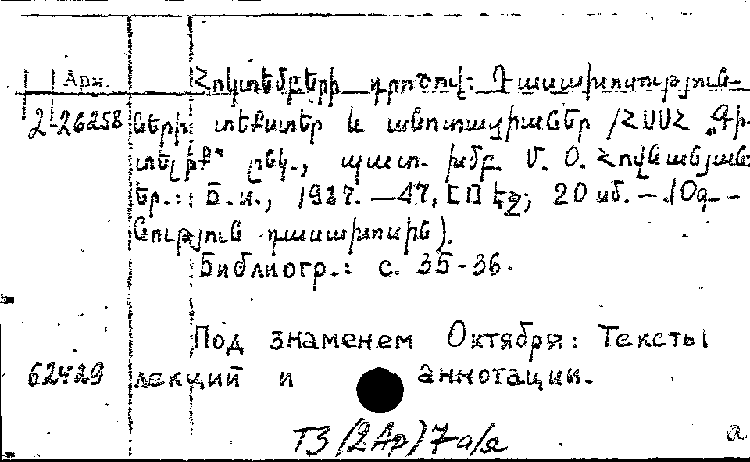 Арм. Հոկտեմբերի դրոշով: Դասախոսություն-
2-26258 ների տեքստեր և անոտացիաներ /ՀՍՍՀ „Գի-
տելիք“ ընկ., պատ. խմբ. Մ. Օ. Հովհաննիս-
եր.: Բ. и., 1987. — 47, [1] էջ; 20 սմ. — (Օգ-
նություն դասախոսին).
Библиогр.: с. 35-36.
Под знаменем Октября: Тексты
62429 лекций и аннотации.
ТЗ(2Ар)7 а/я а